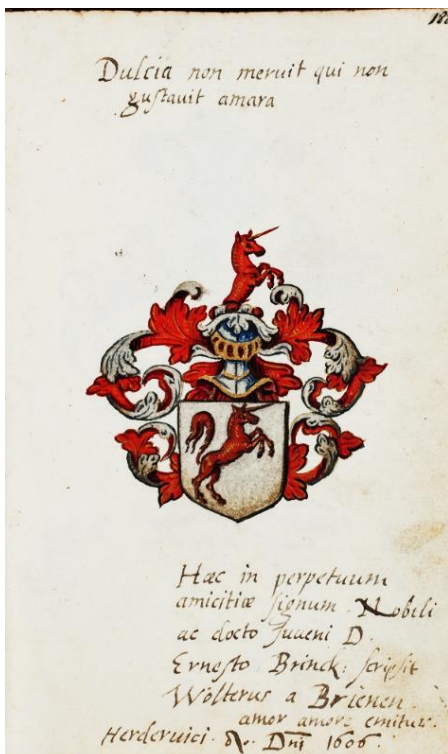 Dulcia non meruit qui non
gustavit amara
Hæc in perpetuum
amicitiæ signum Nobili
ac docto Juveni D.
Ernesto Brinck: scripsit
Wolterus a Brienen.
amor amore emitur.
Herdervici. Dni 1606